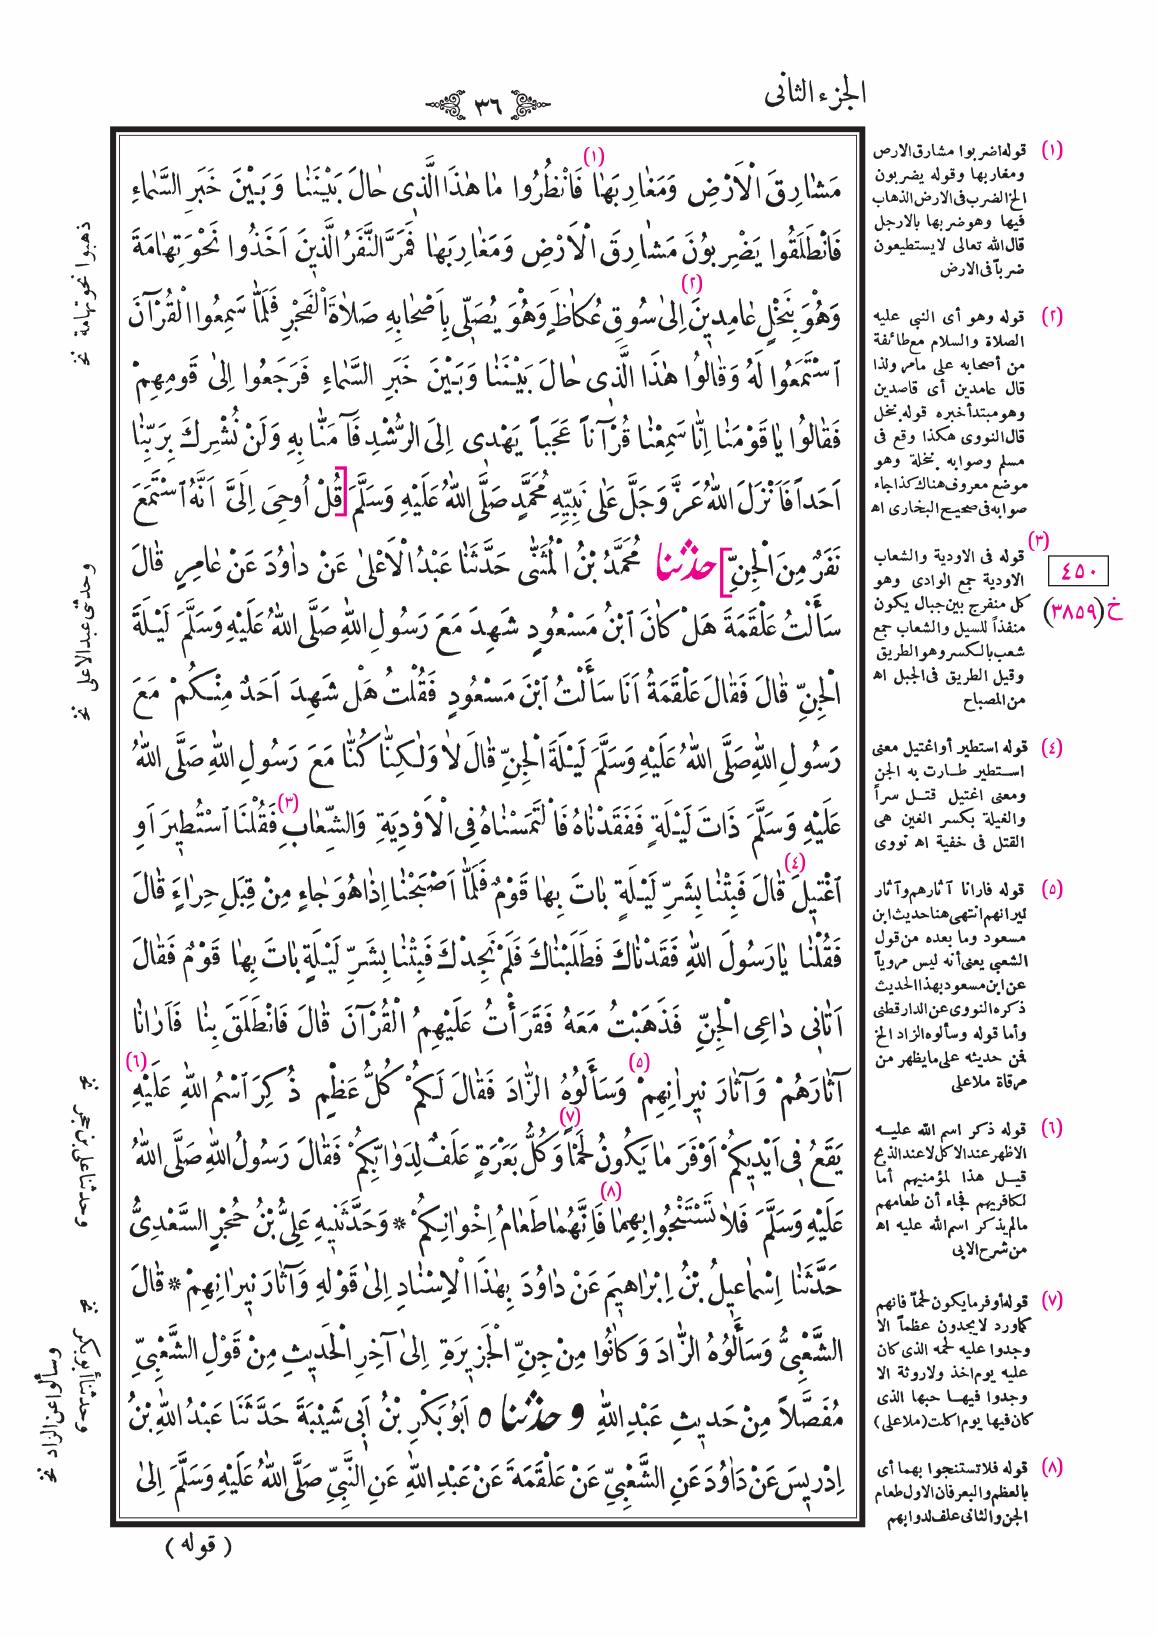 الجزء الثانى
٣٦
مَشَارِقَ الْاَرْضِ وَمَغَارِبَهَا (١) فَانْظُرُوا مَا هٰذَا الَّذِى حَالَ بَيْنَنَا وَبَيْنَ خَبَرِ السَّمَاءِ
فَانْطَلَقُوا يَضْرِبُونَ مَشَارِقَ الْاَرْضِ وَمَغَارِبَهَا فَمَرَّ النَّفَرُ الَّذِينَ اَخَذُوا نَحْوَ تِهَامَةَ
وَهْوَ بِنَخْلٍ عَامِدِينَ (٢) اِلىٰ سُوقِ عُكَاظٍ وَهْوَ يُصَلِّى بِاَصْحَابِهِ صَلَاةَ الْفَجْرِ فَلَمَّا سَمِعُوا الْقُرْآنَ
اسْتَمَعُوا لَهُ وَقَالُوا هٰذَا الَّذِى حَالَ بَيْنَنَا وَبَيْنَ خَبَرِ السَّمَاءِ فَرَجَعُوا اِلىٰ قَوْمِهِمْ
فَقَالُوا يَا قَوْمَنَا اِنَّا سَمِعْنَا قُرْآناً عَجَباً يَهْدِى اِلَى الرُّشْدِ فَآمَنَّا بِهِ وَلَنْ نُشْرِكَ بِرَبِّنَا
اَحَداً فَاَنْزَلَ اللّٰهُ عَزَّ وَجَلَّ عَلىٰ نَبِيِّهِ مُحَمَّدٍ صَلَّى اللّٰهُ عَلَيْهِ وَسَلَّمَ [قُلْ اُوحِىَ اِلَىَّ اَنَّهُ اسْتَمَعَ
نَفَرٌ مِنَ الْجِنِّ] حدثنا مُحَمَّدُ بْنُ الْمُثَنّٰى حَدَّثَنَا عَبْدُ الْاَعْلىٰ عَنْ دَاوُدَ عَنْ عَامِرٍ قَالَ
سَأَلْتُ عَلْقَمَةَ هَلْ كَانَ ابْنُ مَسْعُودٍ شَهِدَ مَعَ رَسُولِ اللّٰهِ صَلَّى اللّٰهُ عَلَيْهِ وَسَلَّمَ لَيْلَةَ
الْجِنِّ قَالَ فَقَالَ عَلْقَمَةُ اَنَا سَأَلْتُ ابْنَ مَسْعُودٍ فَقُلْتُ هَلْ شَهِدَ اَحَدٌ مِنْكُمْ مَعَ
رَسُولِ اللّٰهِ صَلَّى اللّٰهُ عَلَيْهِ وَسَلَّمَ لَيْلَةَ الْجِنِّ قَالَ لَا وَلٰكِنَّا كُنَّا مَعَ رَسُولِ اللّٰهِ صَلَّى اللّٰهُ
عَلَيْهِ وَسَلَّمَ ذَاتَ لَيْلَةٍ فَفَقَدْنَاهُ فَالْتَمَسْنَاهُ فِى الْاَوْدِيَةِ وَالشِّعَابِ (٣) فَقُلْنَا اسْتُطِيرَ اَوِ
اغْتِيلَ (٤) قَالَ فَبِتْنَا بِشَرِّ لَيْلَةٍ بَاتَ بِهَا قَوْمٌ فَلَمَّا اَصْبَحْنَا اِذَا هُوَ جَاءٍ مِنْ قِبَلِ حِرَاءَ قَالَ
فَقُلْنَا يَا رَسُولَ اللّٰهِ فَقَدْنَاكَ فَطَلَبْنَاكَ فَلَمْ نَجِدْكَ فَبِتْنَا بِشَرِّ لَيْلَةٍ بَاتَ بِهَا قَوْمٌ فَقَالَ
اَتَانِى دَاعِى الْجِنِّ فَذَهَبْتُ مَعَهُ فَقَرَأْتُ عَلَيْهِمُ الْقُرْآنَ قَالَ فَانْطَلَقَ بِنَا فَاَرَانَا
آثَارَهُمْ وَآثَارَ نِيرَانِهِمْ (٥) وَسَأَلُوهُ الزَّادَ فَقَالَ لَكُمْ كُلُّ عَظْمٍ ذُكِرَ اسْمُ اللّٰهِ عَلَيْهِ (٦)
يَقَعُ فِى اَيْدِيكُمْ اَوْفَرَ مَا يَكُونُ لَحْمًا (٧) وَكُلُّ بَعْرَةٍ عَلَفٌ لِدَوَابِّكُمْ فَقَالَ رَسُولُ اللّٰهِ صَلَّى اللّٰهُ
عَلَيْهِ وَسَلَّمَ فَلَا تَسْتَنْجُوا بِهِمَا (٨) فَاِنَّهُمَا طَعَامُ اِخْوَانِكُمْ * وَحَدَّثَنِيهِ عَلِىُّ بْنُ حُجْرٍ السَّعْدِىُّ
حَدَّثَنَا اِسْمَاعِيلُ بْنُ اِبْرَاهِيمَ عَنْ دَاوُدَ بِهٰذَا الْاِسْنَادِ اِلىٰ قَوْلِهِ وَآثَارَ نِيرَانِهِمْ * قَالَ
الشَّعْبِىُّ وَسَأَلُوهُ الزَّادَ وَكَانُوا مِنْ جِنِّ الْجَزِيرَةِ اِلىٰ آخِرِ الْحَدِيثِ مِنْ قَوْلِ الشَّعْبِىِّ
مُفَصَّلاً مِنْ حَدِيثِ عَبْدِ اللّٰهِ و حدثنا ه اَبُو بَكْرِ بْنُ اَبِى شَيْبَةَ حَدَّثَنَا عَبْدُ اللّٰهِ بْنُ
اِدْرِيسَ عَنْ دَاوُدَ عَنِ الشَّعْبِىِّ عَنْ عَلْقَمَةَ عَنْ عَبْدِ اللّٰهِ عَنِ النَّبِىِّ صَلَّى اللّٰهُ عَلَيْهِ وَسَلَّمَ اِلىٰ
( قوله )
(١) قوله اضربوا مشارق الارض
ومغاربها وقوله يضربون
الخ الضرب فى الارض الذهاب
فيها وهو ضربها بالارجل
قال الله تعالى لا يستطيعون
ضرباً فى الارض
(٢) قوله وهو أى النبى عليه
الصلاة والسلام مع طائفة
من أصحابه على مامر ولذا
قال عامدين أى قاصدين
وهو مبتدأ خبره قوله بنخل
قال النووى هكذا وقع فى
مسلم وصوابه بنخلة وهو
موضع معروف هناك كذا جاء
صوابه فى صحيح البخارى اه
(٣) قوله فى الاودية والشعاب
الاودية جمع الوادى وهو
كل منفرج بين جبال يكون
منفذاً للسيل والشعاب جمع
شعب بالكسر وهو الطريق
وقيل الطريق فى الجبل اه
من المصباح
٤٥٠
خ (٣٨٥٩)
(٤) قوله استطير أو اغتيل معنى
استطير طارت به الجن
ومعنى اغتيل قتل سراً
والغيلة بكسر الغين هى
القتل فى خفية اه نووى
(٥) قوله فارانا آثارهم وآثار
نيرانهم انتهى هنا حديث ابن
مسعود وما بعده من قول
الشعبى يعنى أنه ليس مروياً
عن ابن مسعود بهذا الحديث
ذكره النووى عن الدارقطنى
وأما قوله وسألوه الزاد الخ
فمن حديثه على ما يظهر من
مرقاة ملا على
(٦) قوله ذكر اسم الله عليه
الاظهر عند الاكل لا عند الذبح
قيل هذا لمؤمنيهم أما
لكافريهم فجاء أن طعامهم
مالم يذكر اسم الله عليه اه
من شرح الابى
(٧) قوله أوفر ما يكون لحماً فانهم
كما ورد لا يجدون عظماً الا
وجدوا عليه لحمه الذى كان
عليه يوم اخذ ولا روثة الا
وجدوا فيها حبها الذى
كان فيها يوم اكلت (ملا على)
(٨) قوله فلا تستنجوا بهما أى
بالعظم والبعر فان الاول طعام
الجن والثانى علف لدوابهم
ذهبوا نحو تهامة نخ
وحدثنى عبد الاعلى نخ
وحدثنا على بن حجر نخ
وحدثنا أبو بكر نخ
وسألوا عن الزاد نخ